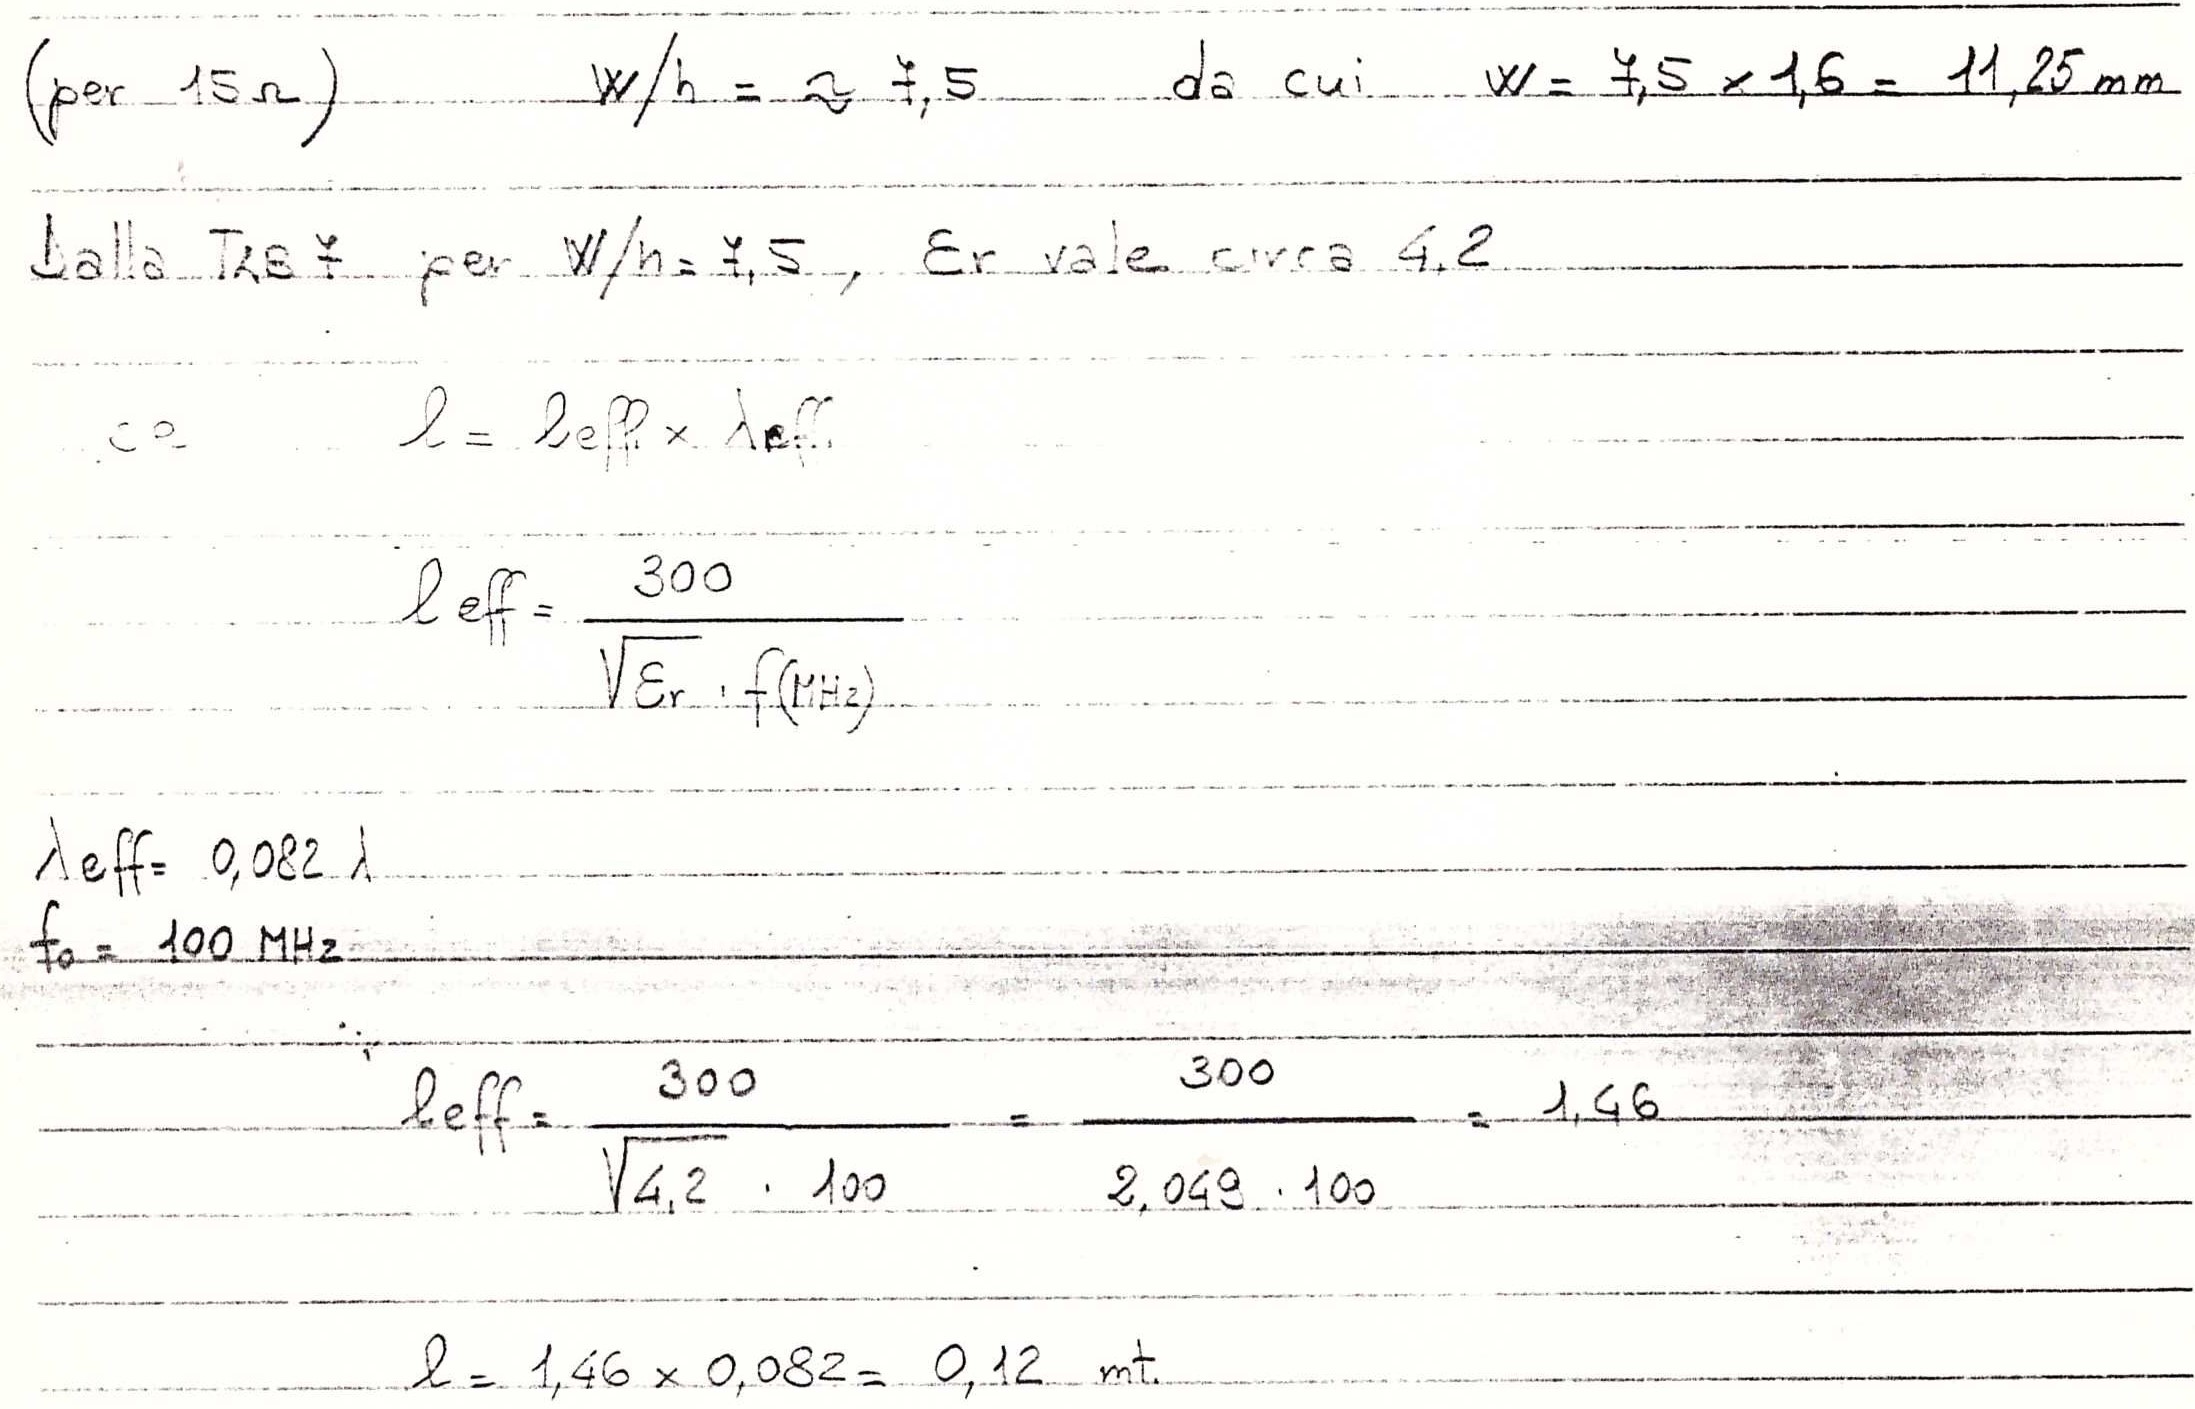 (per 15 Ω) W/h = ≈ 7,5 da cui W = 7,5 x 1,6 = 11,25 mm
Dalla TAB 7 per W/h = 7,5, Er vale circa 4,2
l = leff. x λeff.
l eff = 300 / √Er . f(MHz)
λeff = 0,082 λ
fo = 100 MHz
leff = 300 / √4,2 . 100 = 300 / 2,049 . 100 = 1,46
l = 1,46 x 0,082 = 0,12 mt.